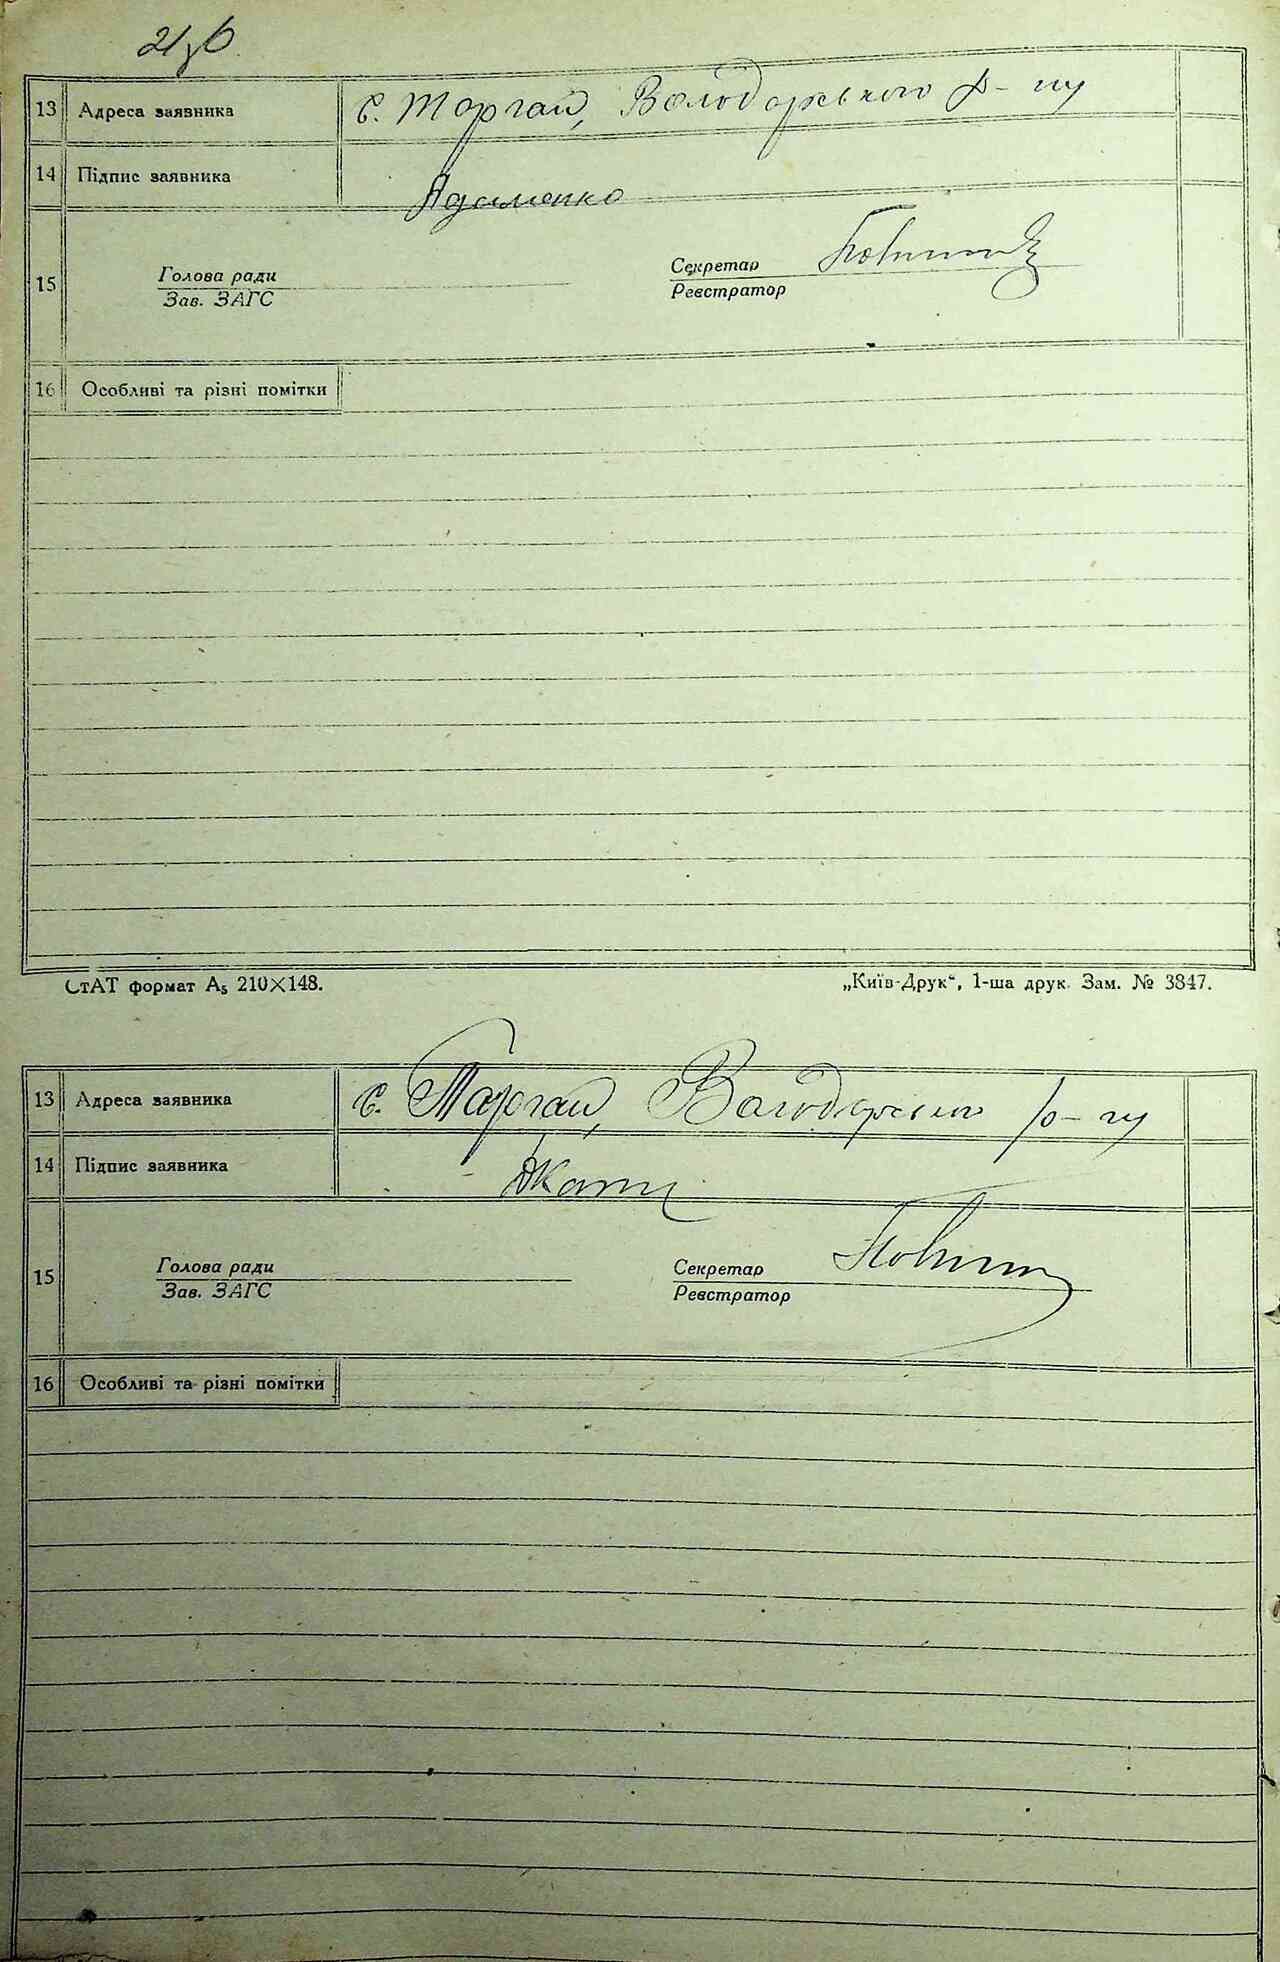 21зб
13 Адреса заявника с. Торган, Володарського р-ну
14 Підпис заявника Адаменко
15 Голова ради Секретар
Зав. ЗАГС Реєстратор
16 Особливі та різні помітки
СтАТ формат А₅ 210×148. „Київ-Друк“, 1-ша друк. Зам. № 3847.
13 Адреса заявника с. Торган, Володарського р-ну
14 Підпис заявника
15 Голова ради Секретар
Зав. ЗАГС Реєстратор
16 Особливі та різні помітки